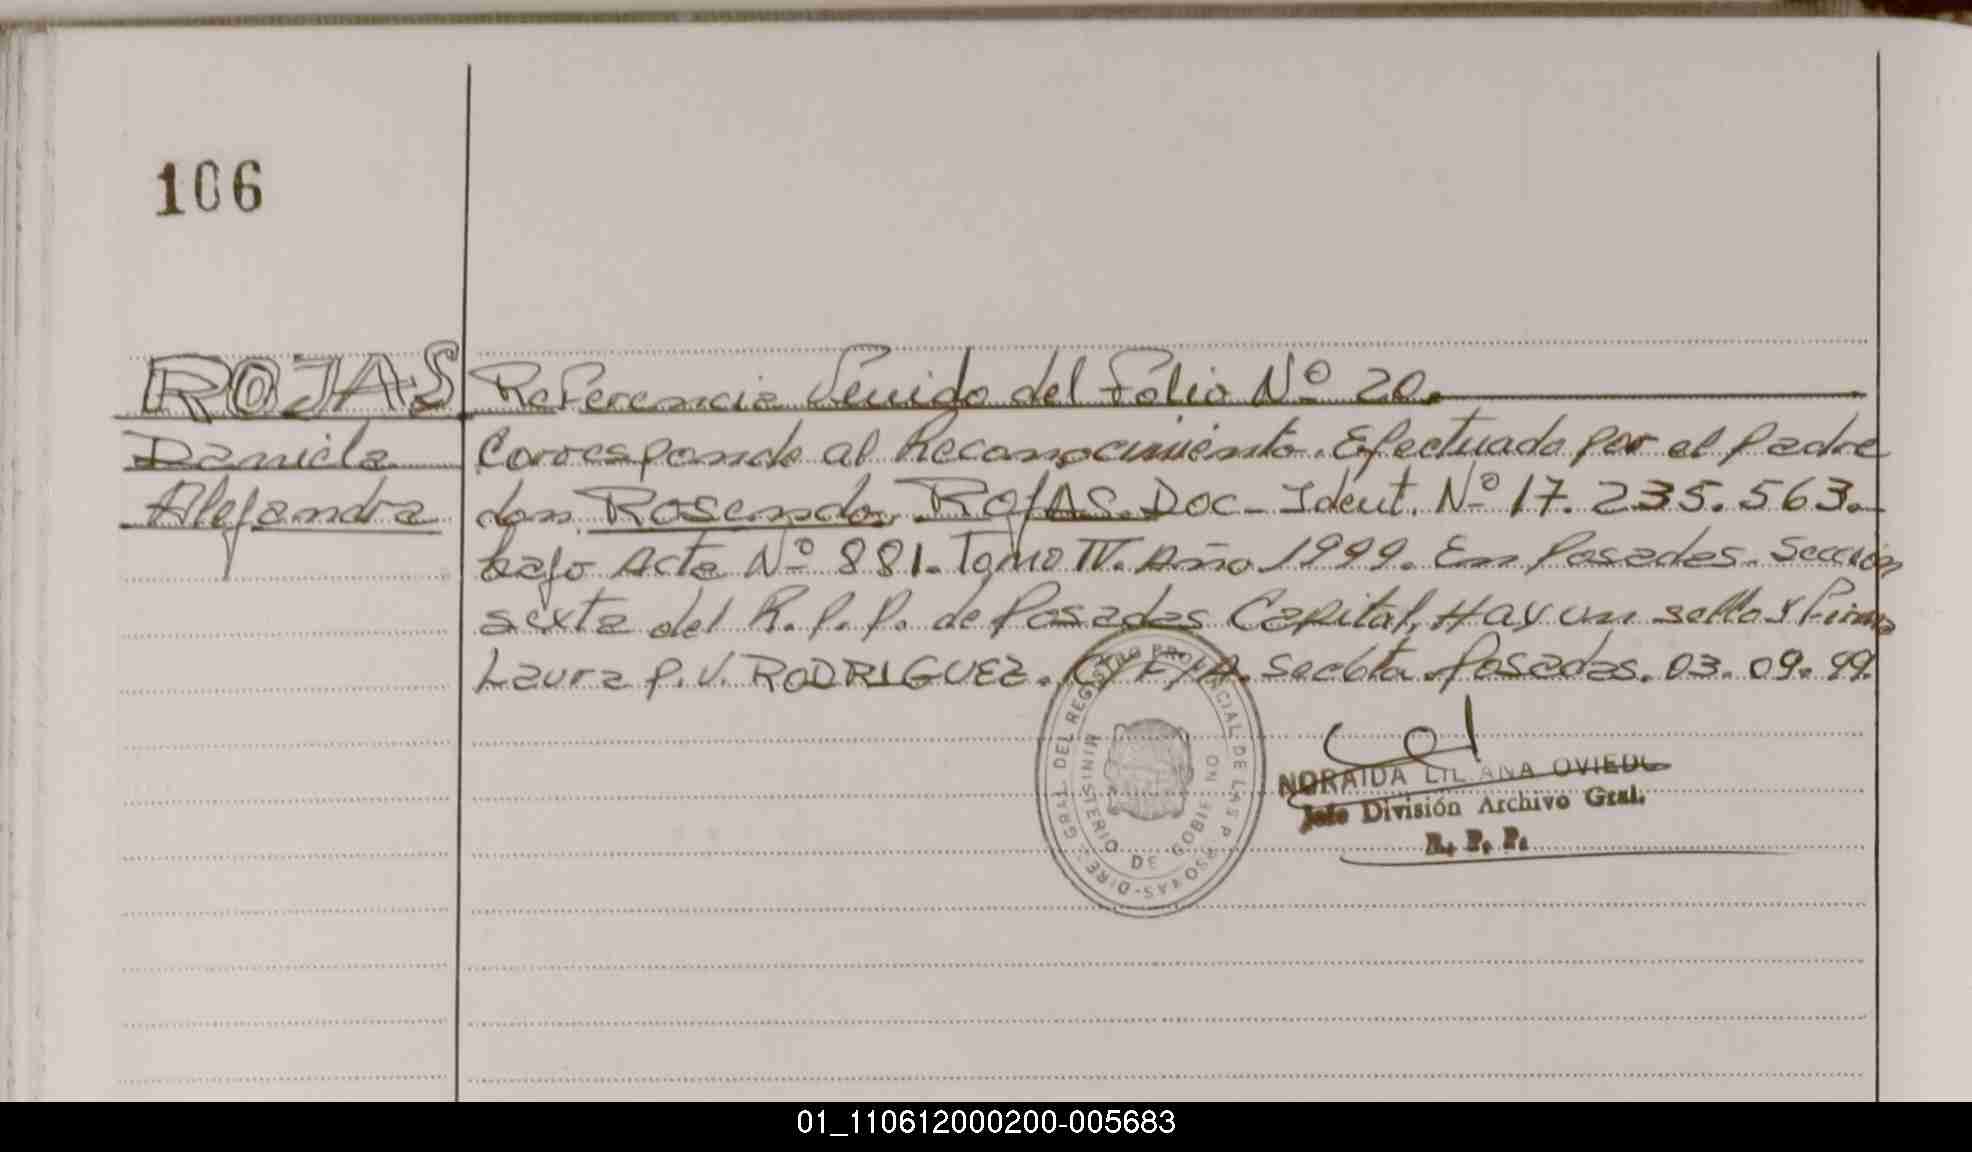 106
ROJAS Referencia Venido del Folio Nº 20.
Daniela Corresponde al Reconocimiento. Efectuado por el padre
Alejandra don Rosendo ROJAS. Doc- Ident. Nº 17.235.563.-
bajo Acta Nº 881. Tomo IV. Año 1999. En Posadas. Sección
sexta del R.P.P. de Posadas Capital, Hay un sello y Firma
Laura P.V. RODRIGUEZ. Sec 6ta. Posadas. 03.09.99.
DIREC. GRAL. DEL REGISTRO PROVINCIAL DE LAS PERSONAS-
MINISTERIO DE GOBIERNO
NORAIDA LILIANA OVIEDO
Jefe División Archivo Gral.
R. P. P.
01_110612000200-005683